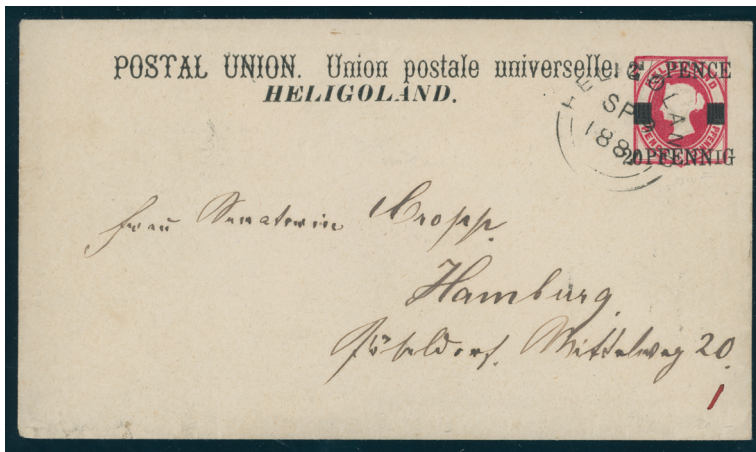 POSTAL UNION. Union postale universelle.
HELIGOLAND.
PENCE
20 PFENNIG
HELIGOLAND
SP
188
Frau Senatorin Cropp.
Hamburg
Pöseldorf. Mittelweg 20.
1